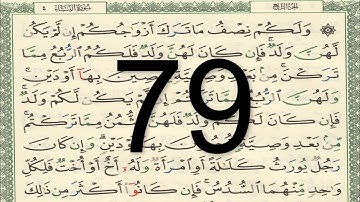 الجزء الرابع سورة النساء ٤
۞ وَلَكُمْ نِصْفُ مَا تَرَكَ أَزْوَٰجُكُمْ إِن لَّمْ يَكُن
لَّهُنَّ وَلَدٌ ۚ فَإِن كَانَ لَهُنَّ وَلَدٌ فَلَكُمُ ٱلرُّبُعُ مِمَّا
تَرَكْنَ ۚ مِنۢ بَعْدِ وَصِيَّةٍ يُوصِينَ بِهَآ أَوْ دَيْنٍ ۚ
وَلَهُنَّ ٱلرُّبُعُ مِمَّا تَرَكْتُمْ إِن لَّمْ يَكُن لَّكُمْ وَلَدٌ ۚ
فَإِن كَانَ لَكُمْ وَلَدٌ فَلَهُنَّ ٱلثُّمُنُ مِمَّا تَرَكْتُم ۚ
مِّنۢ بَعْدِ وَصِيَّةٍ تُوصُونَ بِهَآ أَوْ دَيْنٍ ۗ وَإِن كَانَ
رَجُلٌ يُورَثُ كَلَٰلَةً أَوِ ٱمْرَأَةٌ وَلَهُۥٓ أَخٌ أَوْ أُخْتٌ فَلِكُلِّ
وَٰحِدٍ مِّنْهُمَا ٱلسُّدُسُ ۚ فَإِن كَانُوٓا۟ أَكْثَرَ مِن ذَٰلِكَ
79